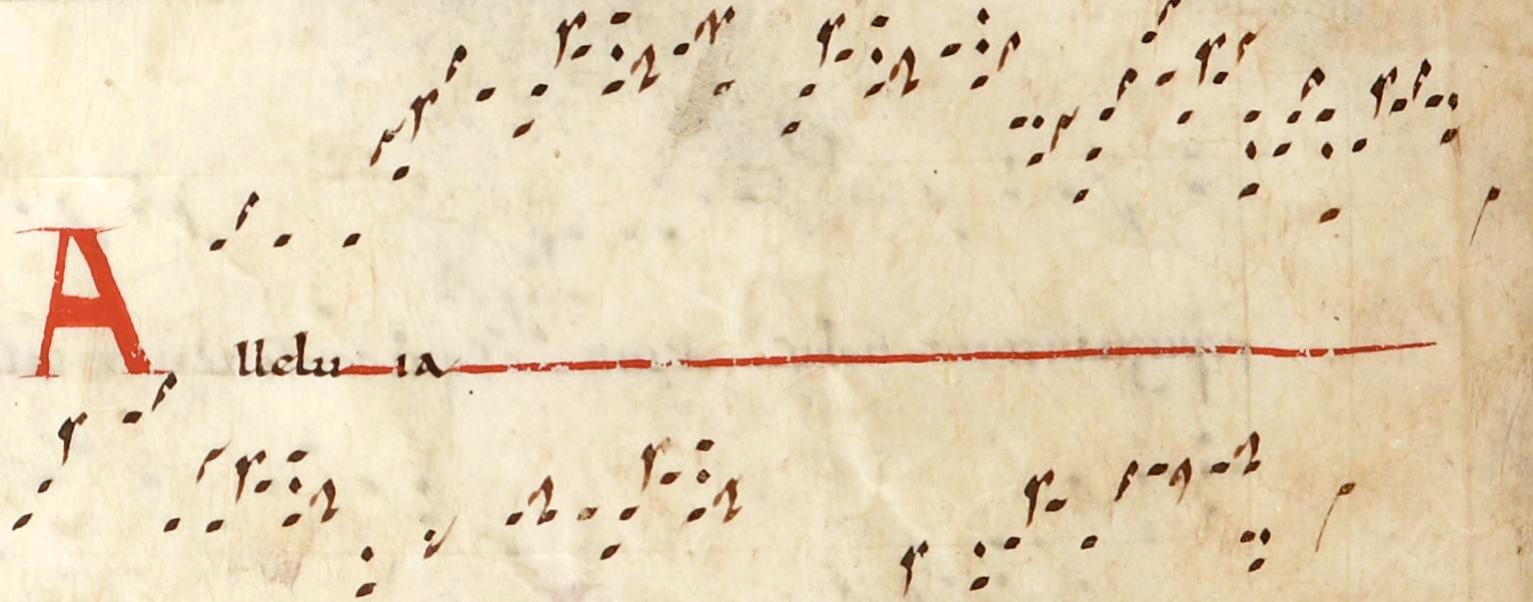 Allelu ia